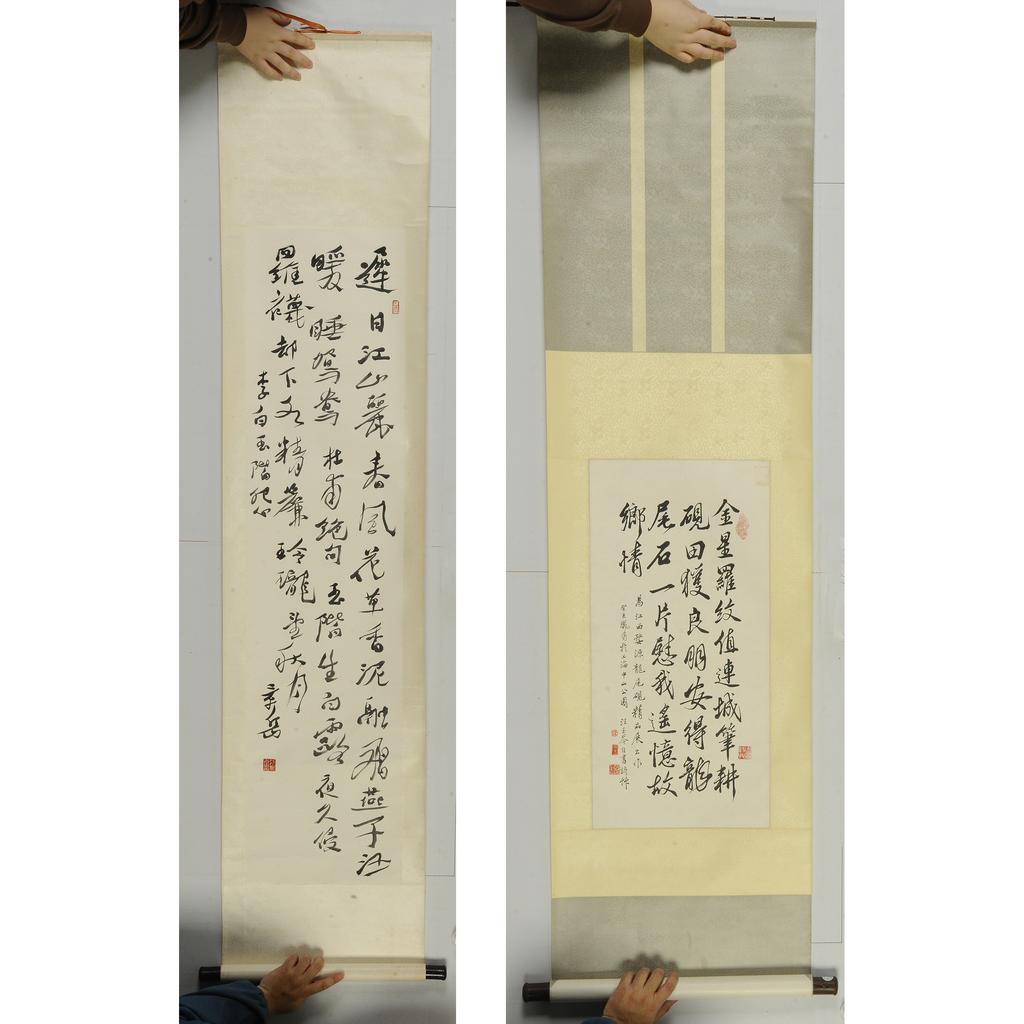 遲日江山麗春風花草香泥融飛燕子沙
暖睡鴛鴦 杜甫絕句 玉階生白露夜久侵
羅襪却下水精簾玲瓏望秋月
李白玉階怨
金星羅紋值連城筆耕
硯田獲良朋安得龍
尾石一片慰我遙憶故
鄉情
為江西婺源龍尾硯精品展之作
於上海中山公園 汪 自書詩作